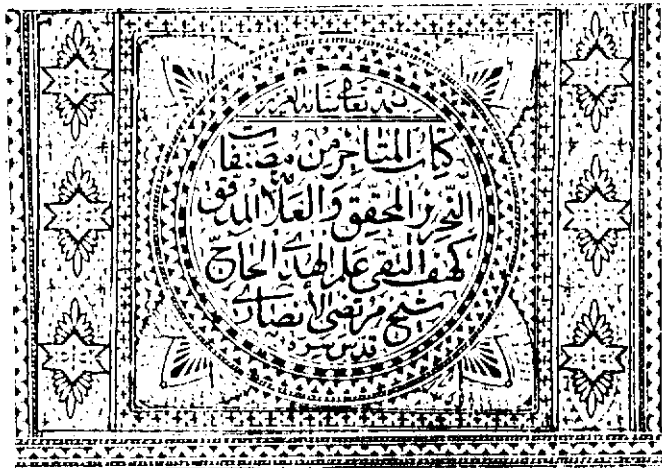 تعالى شانه
كتاب المتاجر من مصنفات
النحرير المحقق والعلامة المدقق
كهف التقى علم الهدى الحاج
شيخ مرتضى الانصارى
قدس سره